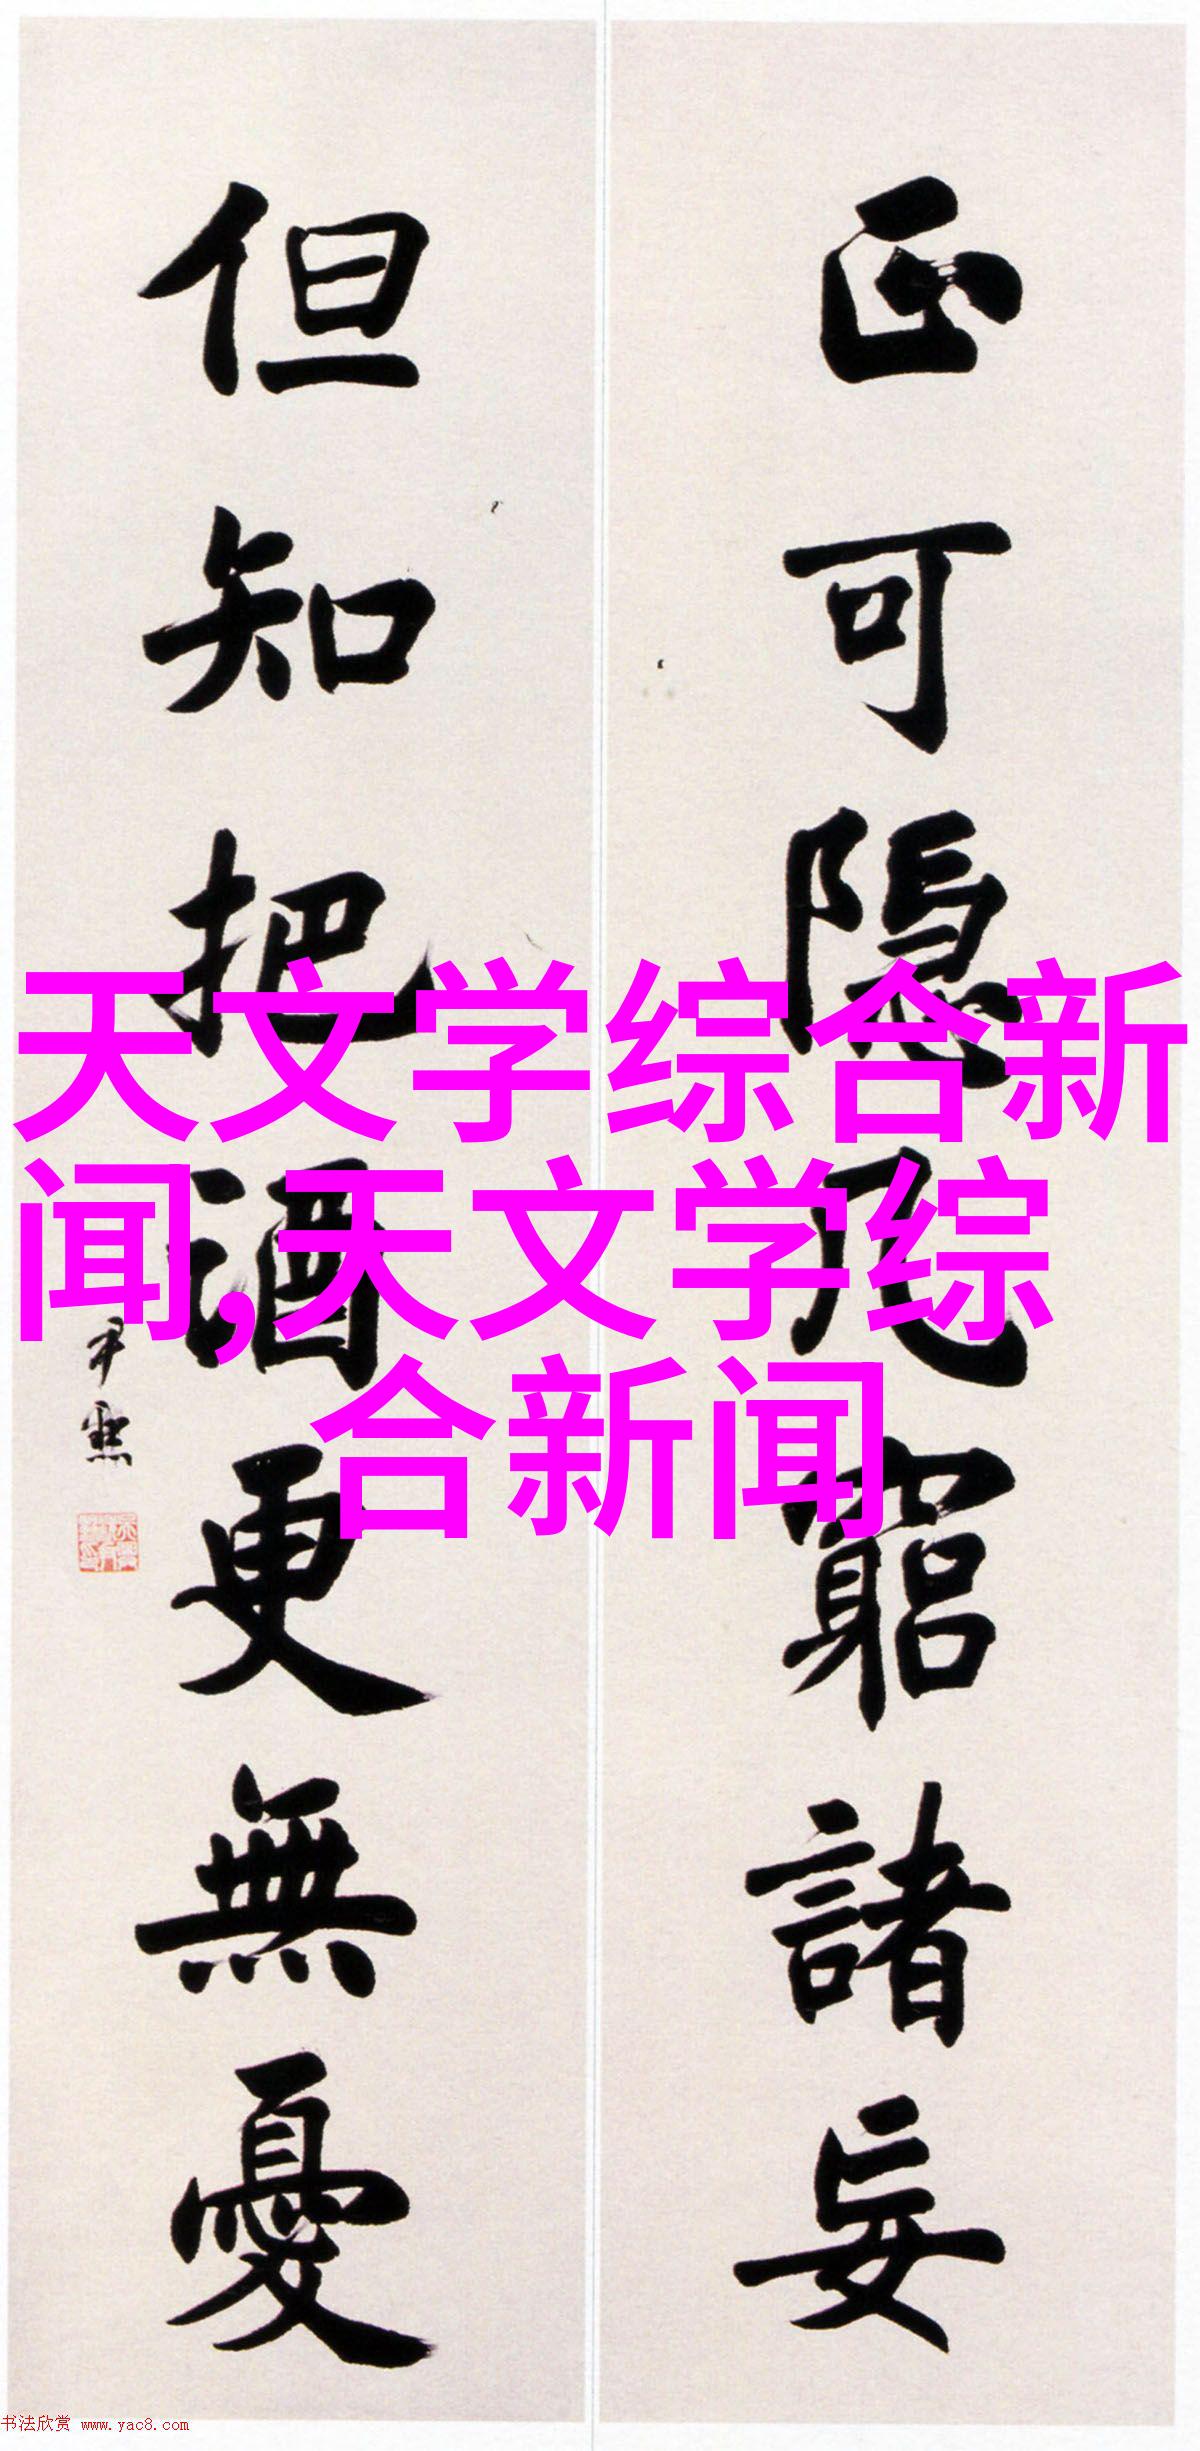 正可隐几竆諸妄
但知把酒更無憂
尹默
天文学综合新
闻,天文学综
合新闻
书法欣赏 www.yac8.com